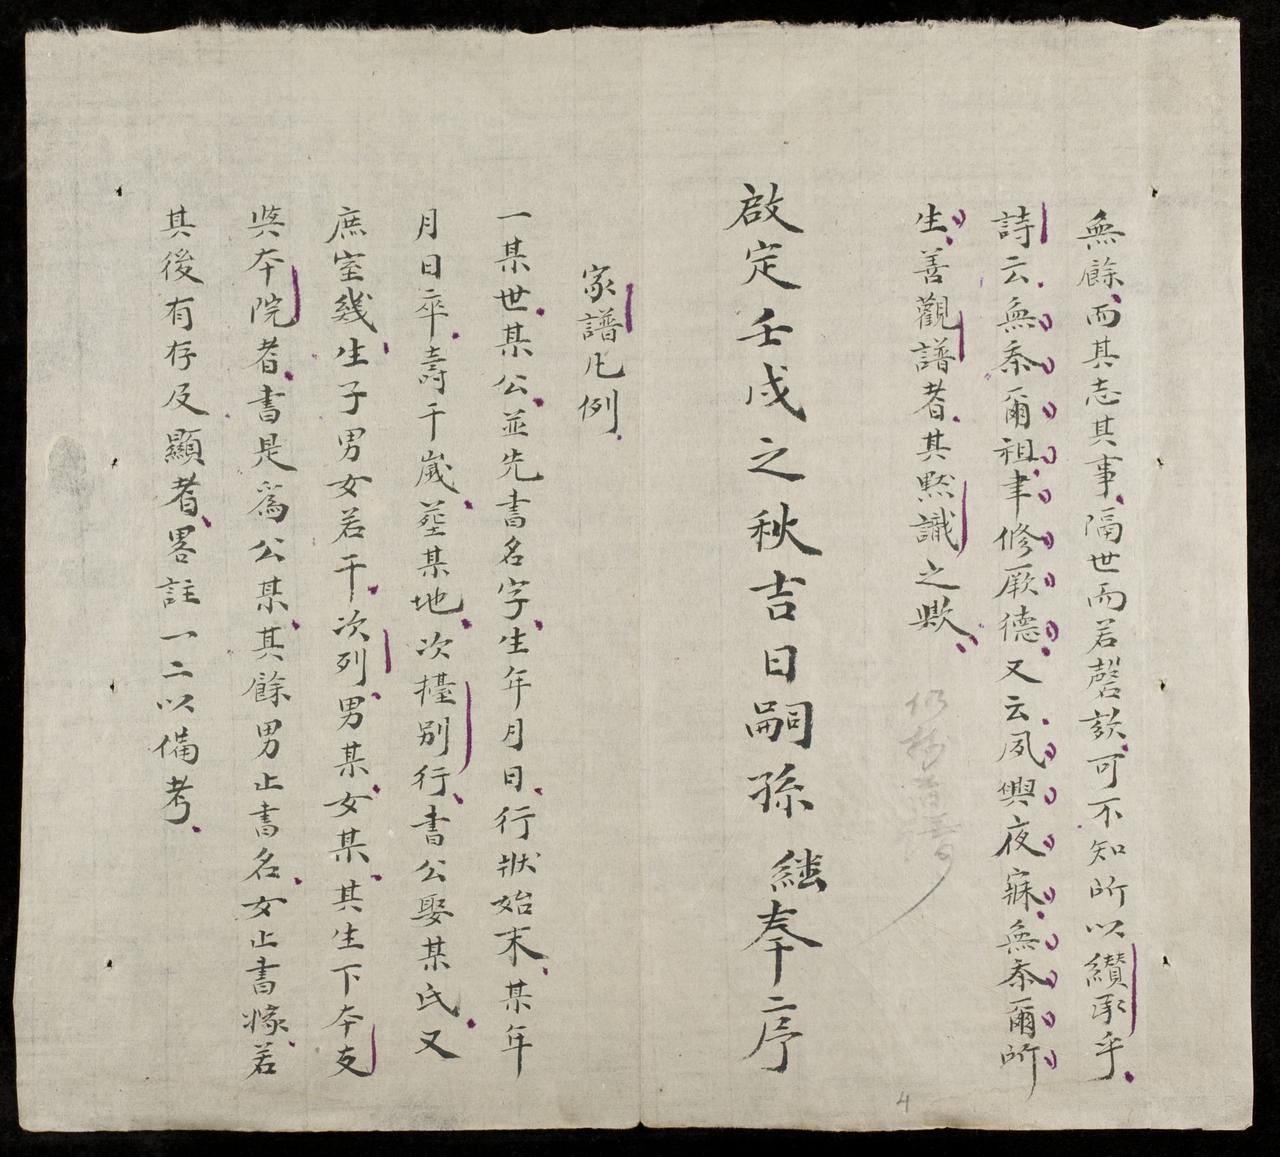 無餘而其志其事隔世而若謦欬可不知所以纘承乎
詩云無忝爾祖聿修厥德又云夙興夜寐無忝爾所
生善觀譜者其黙識之歟
啟定壬戌之秋吉日嗣孫 繼奉序
家譜凡例
一某世某公並先書名字生年月日行狀始末某年
月日卒壽干歲塟某地次擡別行書公娶某氏又
庶室幾生子男女若干次列男某女某其生下本支
與本院者書是爲公某其餘男止書名女止書嫁若
其後有存及顯者畧註一二以俻考
4